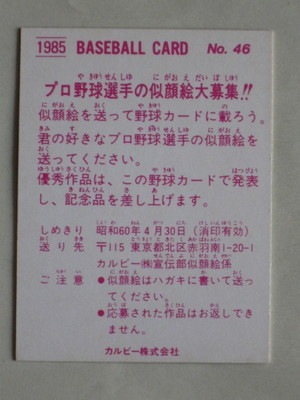 1985 BASEBALL CARD No. 46
プロ野球選手の似顔絵大募集!!
似顔絵を送って野球カードに載ろう。
君の好きなプロ野球選手の似顔絵
を送ってください。
優秀作品は、この野球カードで発表
し、記念品を差し上げます。
しめきり 昭和60年4月30日(消印有効)
送り先 〒115 東京都北区赤羽南1-20-1
カルビー㈱宣伝部似顔絵係
ご注意 ●似顔絵はハガキに書いて送っ
てください。
●応募された作品はお返しでき
ません。
カルビー株式会社